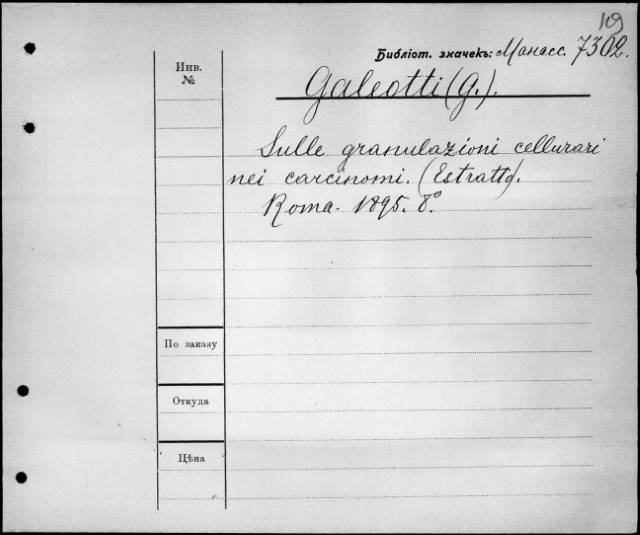 109
Библіот. значекъ: Манасс. 7302.
Инв.
№
Galeotti (G.).
Sulle granulazioni cellurari
nei carcinomi. (Estratto).
Roma. 1895. 8°.
По заказу
Откуда
Цѣна